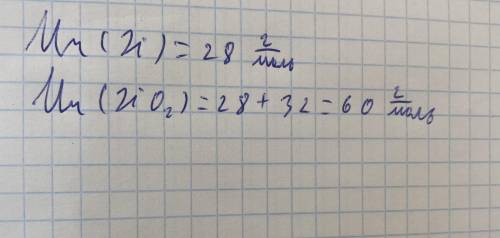 Mr (Si) = 28 г/моль
Mr (SiO₂) = 28 + 32 = 60 г/моль